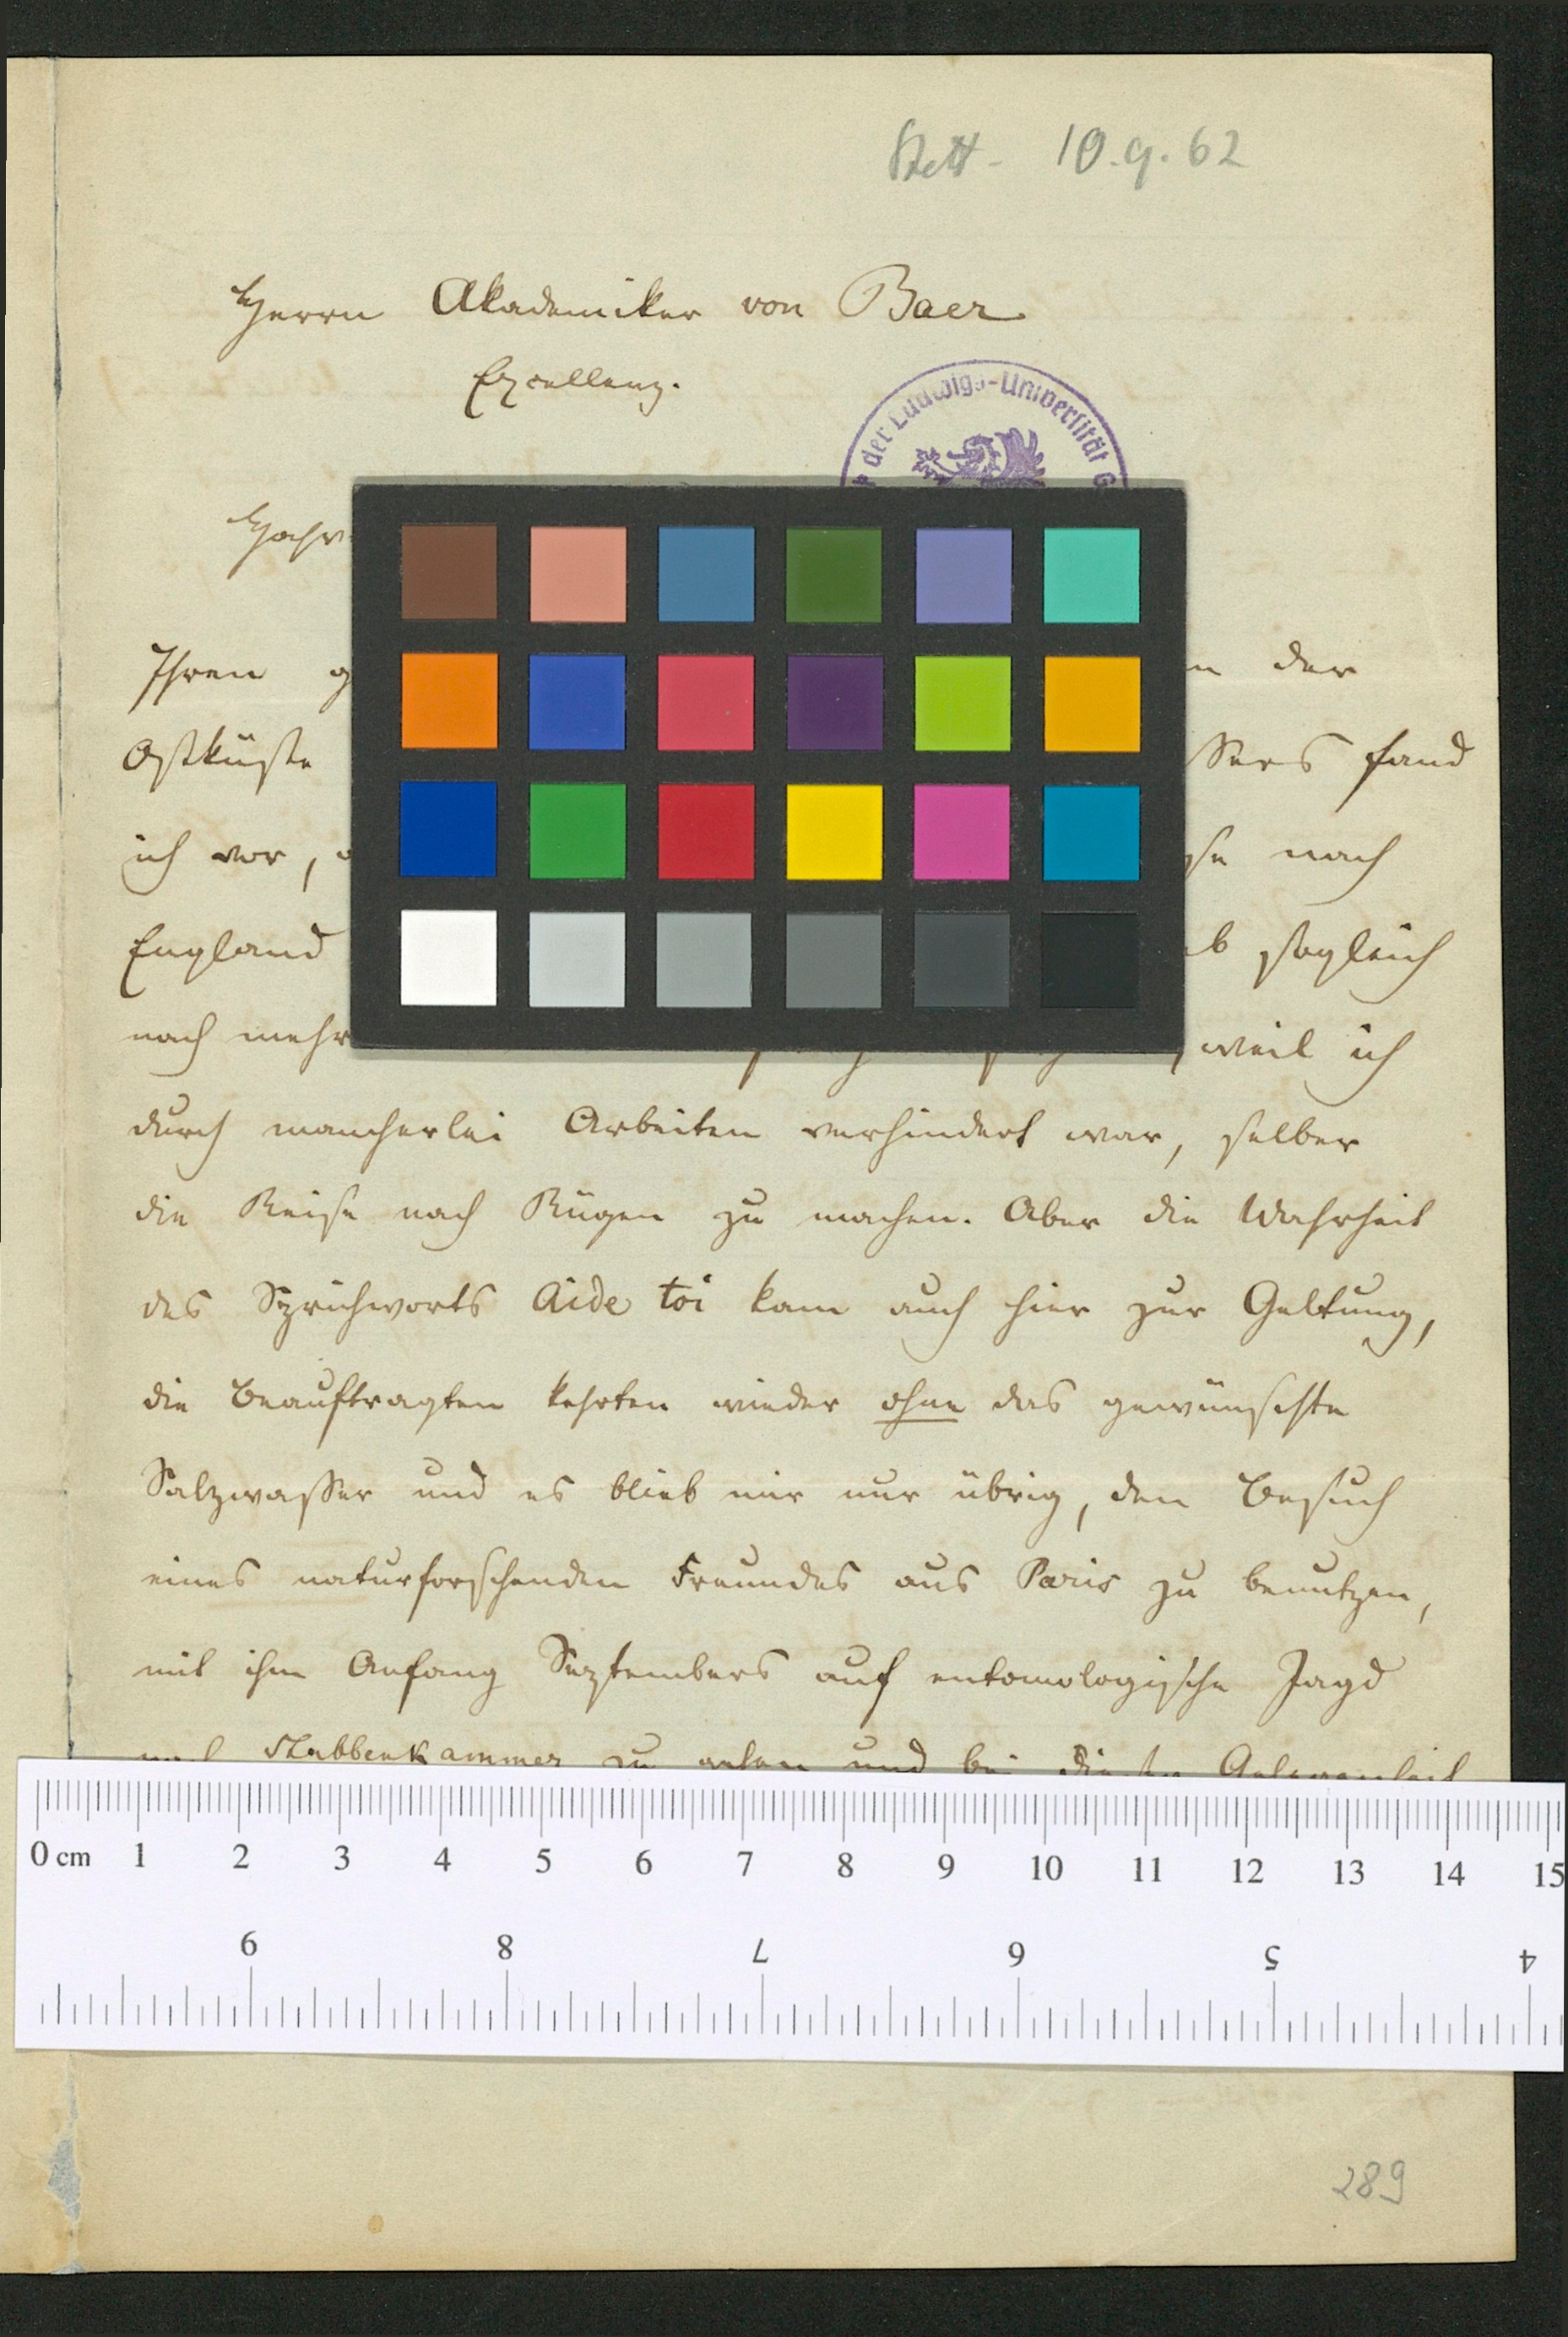 Stett- 10.9.62
Herrn Akademiker von Baer
Excellenz.
der Ludwigs-Universität G
Hochv
Ihren g n der
Ostküste ssers fand
ich vor, nach
England b sogleich
nach mehr , weil ich
durch mancherlei Arbeiten verhindert war, selber
die Reise nach Rügen zu machen. Aber die Wahrheit
des Sprichworts Aide toi kam auch hier zur Geltung,
die Beauftragten kehrten wieder ohne das gewünschte
Salzwasser und es blieb mir nur übrig, den Besuch
eines naturforschenden Freundes aus Paris zu benutzen,
mit ihm Anfang Septembers auf entomologische Jagd
nach Stubbenkammer zu gehen und bei dieser Gelegenheit
0 cm 1 2 3 4 5 6 7 8 9 10 11 12 13 14 15
9 8 7 6 5 4
289